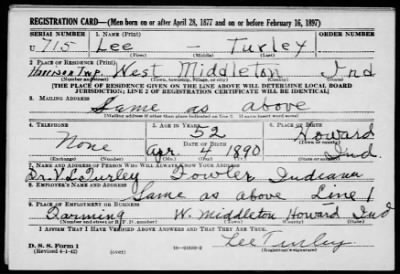 REGISTRATION CARD—(Men born on or after April 28, 1877 and on or before February 16, 1897)
SERIAL NUMBER 1. NAME (Print) ORDER NUMBER
U 715 Lee - Turley
(First) (Middle) (Last)
2. PLACE OF RESIDENCE (Print)
Harrison Twp. West Middleton Ind
(Number and street) (Town, township, village, or city) (County) (State)
[THE PLACE OF RESIDENCE GIVEN ON THE LINE ABOVE WILL DETERMINE LOCAL BOARD
JURISDICTION; LINE 2 OF REGISTRATION CERTIFICATE WILL BE IDENTICAL]
3. MAILING ADDRESS
Same as above
(Mailing address if other than place indicated on line 2. If same insert word same)
4. TELEPHONE 5. AGE IN YEARS 6. PLACE OF BIRTH
52 Howard
None DATE OF BIRTH (Town or county)
Apr. 4 1890 Ind.
(Exchange) (Number) (Mo.) (Day) (Yr.) (State or country)
7. NAME AND ADDRESS OF PERSON WHO WILL ALWAYS KNOW YOUR ADDRESS
Dr. V. L. Turley Fowler Indiana
8. EMPLOYER'S NAME AND ADDRESS
Same as above Line 1
9. PLACE OF EMPLOYMENT OR BUSINESS
Farming W. Middleton Howard Ind
(Number and street or R. F. D. number) (Town) (County) (State)
I AFFIRM THAT I HAVE VERIFIED ABOVE ANSWERS AND THAT THEY ARE TRUE.
D. S. S. Form 1
(Revised 4-1-42) Lee Turley
(Registrant's signature)